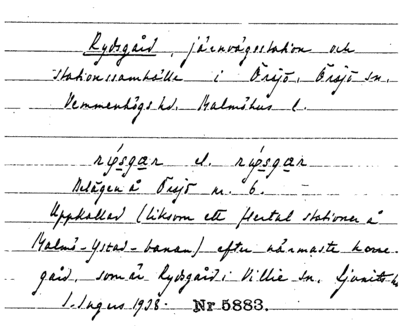 Rydsgård, järnvägsstation och
stationssamhälle i Örsjö, Örsjö sn.
Vemmenhögs hd. Malmöhus l.
rýsgar el. rýsgar
Belägen å Örsjö nr. 6.
Uppkallad (liksom ett flertal stationer å
Malmö-Ystad-banan) efter närmaste herre-
gård, som är Rydsgård i Villie sn. Ljunits hd
I. Ingers 1938. Nr 5883.